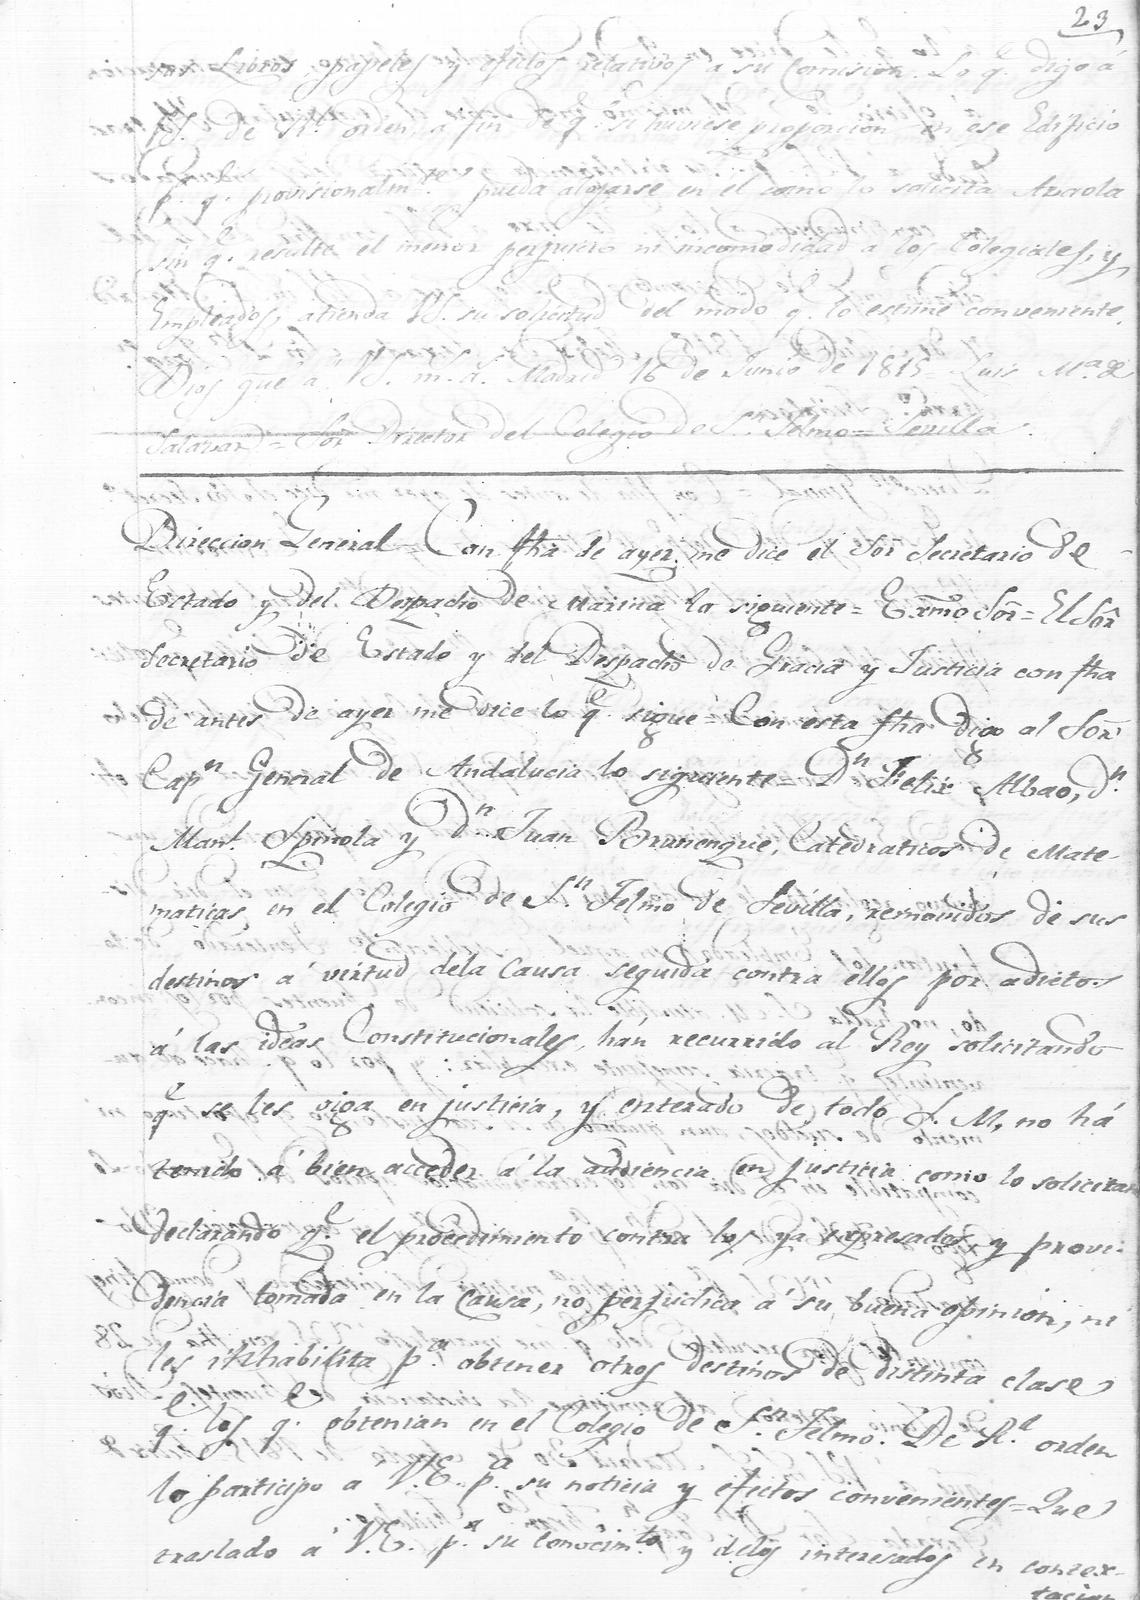 23
sus Libros, papeles y efectos relativos a su Comision. Lo q.e digo á
VS. de R.l orden a fin de q.e si huviese proporcion en ese Edificio
p.a q.e provisionalm.te pueda alojarse en el como lo solicita Araola
sin q.e resulte el menor perjuicio ni incomodidad a los Colegiales, y
Empleados, atienda VS. su solicitud del modo q.e lo estime conveniente.
Dios gue. a VS. m.s a.s Madrid 16 de Junio de 1815= Luis M.a de
Salazar= Sor. Director del Colegio de S.n Telmo= Sevilla.
Direccion General= Con fha de ayer me dice el Sor. Secretario de
Estado y del Despacho de Marina lo siguiente= Exmo Sor.= El Sor.
Secretario de Estado y del Despacho de Gracia y Justicia con fha
de antes de ayer me dice lo q.e sigue= Con esta fha digo al Sor.
Cap.n General de Andalucia lo siguiente= D.n Felix Albao, d.n
Man.l Spinola y d.n Juan Brunenque, Catedraticos de Mate-
maticas en el Colegio de S.n Telmo de Sevilla, removidos de sus
destinos a' virtud dela causa seguida contra ellos por adictos
á las ideas Constitucionales, hán recurrido al Rey solicitando
q.e se les oiga en justicia, y enterado de todo S. M, no há
tenido á bien acceder á la audiencia en justicia como lo solicitan
declarando q.e el procedimiento contra los ya expresados y provi-
dencia tomada en la causa, no perjudica a' su buena opinion, ni
les inhabilita p.a obtener otros destinos de distinta clase
q.e los q.e obtenian en el Colegio de S.n Telmo. De R.l orden
lo participo a V.E. p.a su noticia y efectos convenientes= Que
traslado a' V.E. p.a su conocim.to y delos interesados en contex-
tacion